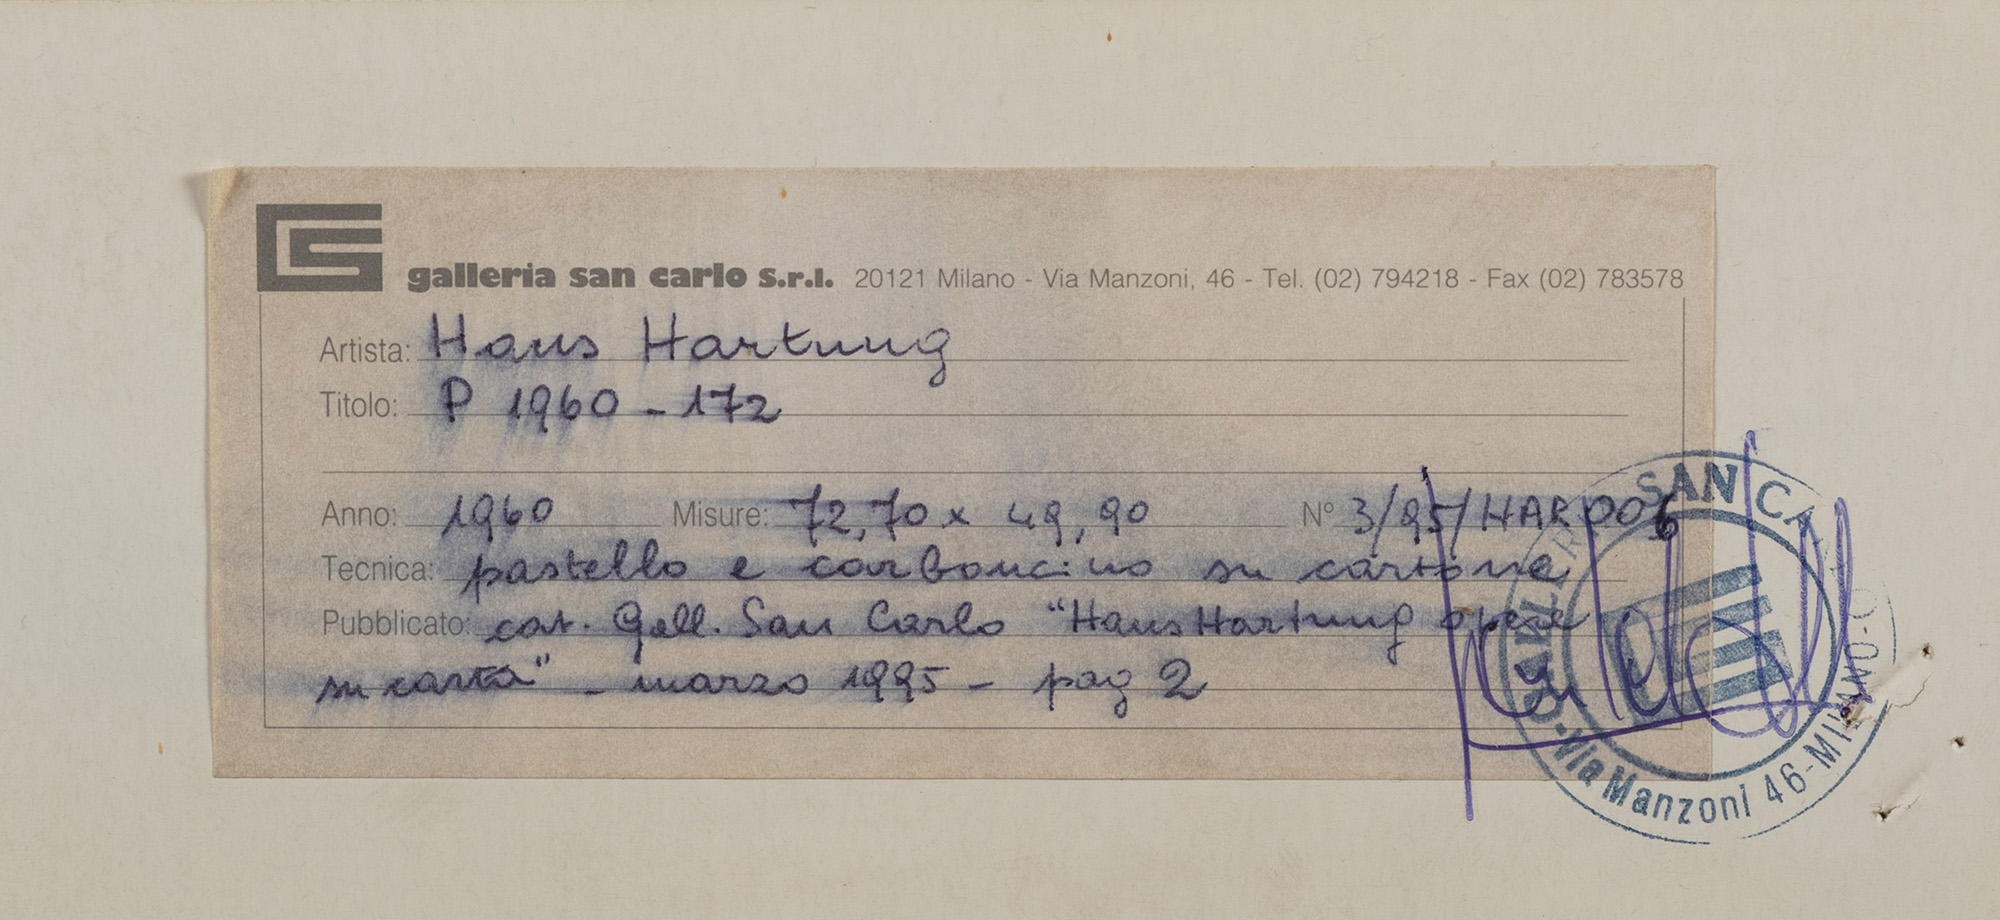 galleria san carlo s.r.l. 20121 Milano - Via Manzoni, 46 - Tel. (02) 794218 - Fax (02) 783578
Artista: Hans Hartung
Titolo: P 1960 - 172
Anno: 1960 Misure: 72,70 x 49,90 N° 3/95/HAR006
Tecnica: pastello e carboncino su cartone
Pubblicato: cat. Gall. San Carlo "Hans Hartung opere
su carta" - marzo 1995 - pag 2
SAN CA
Via Manzoni 46-MILANO